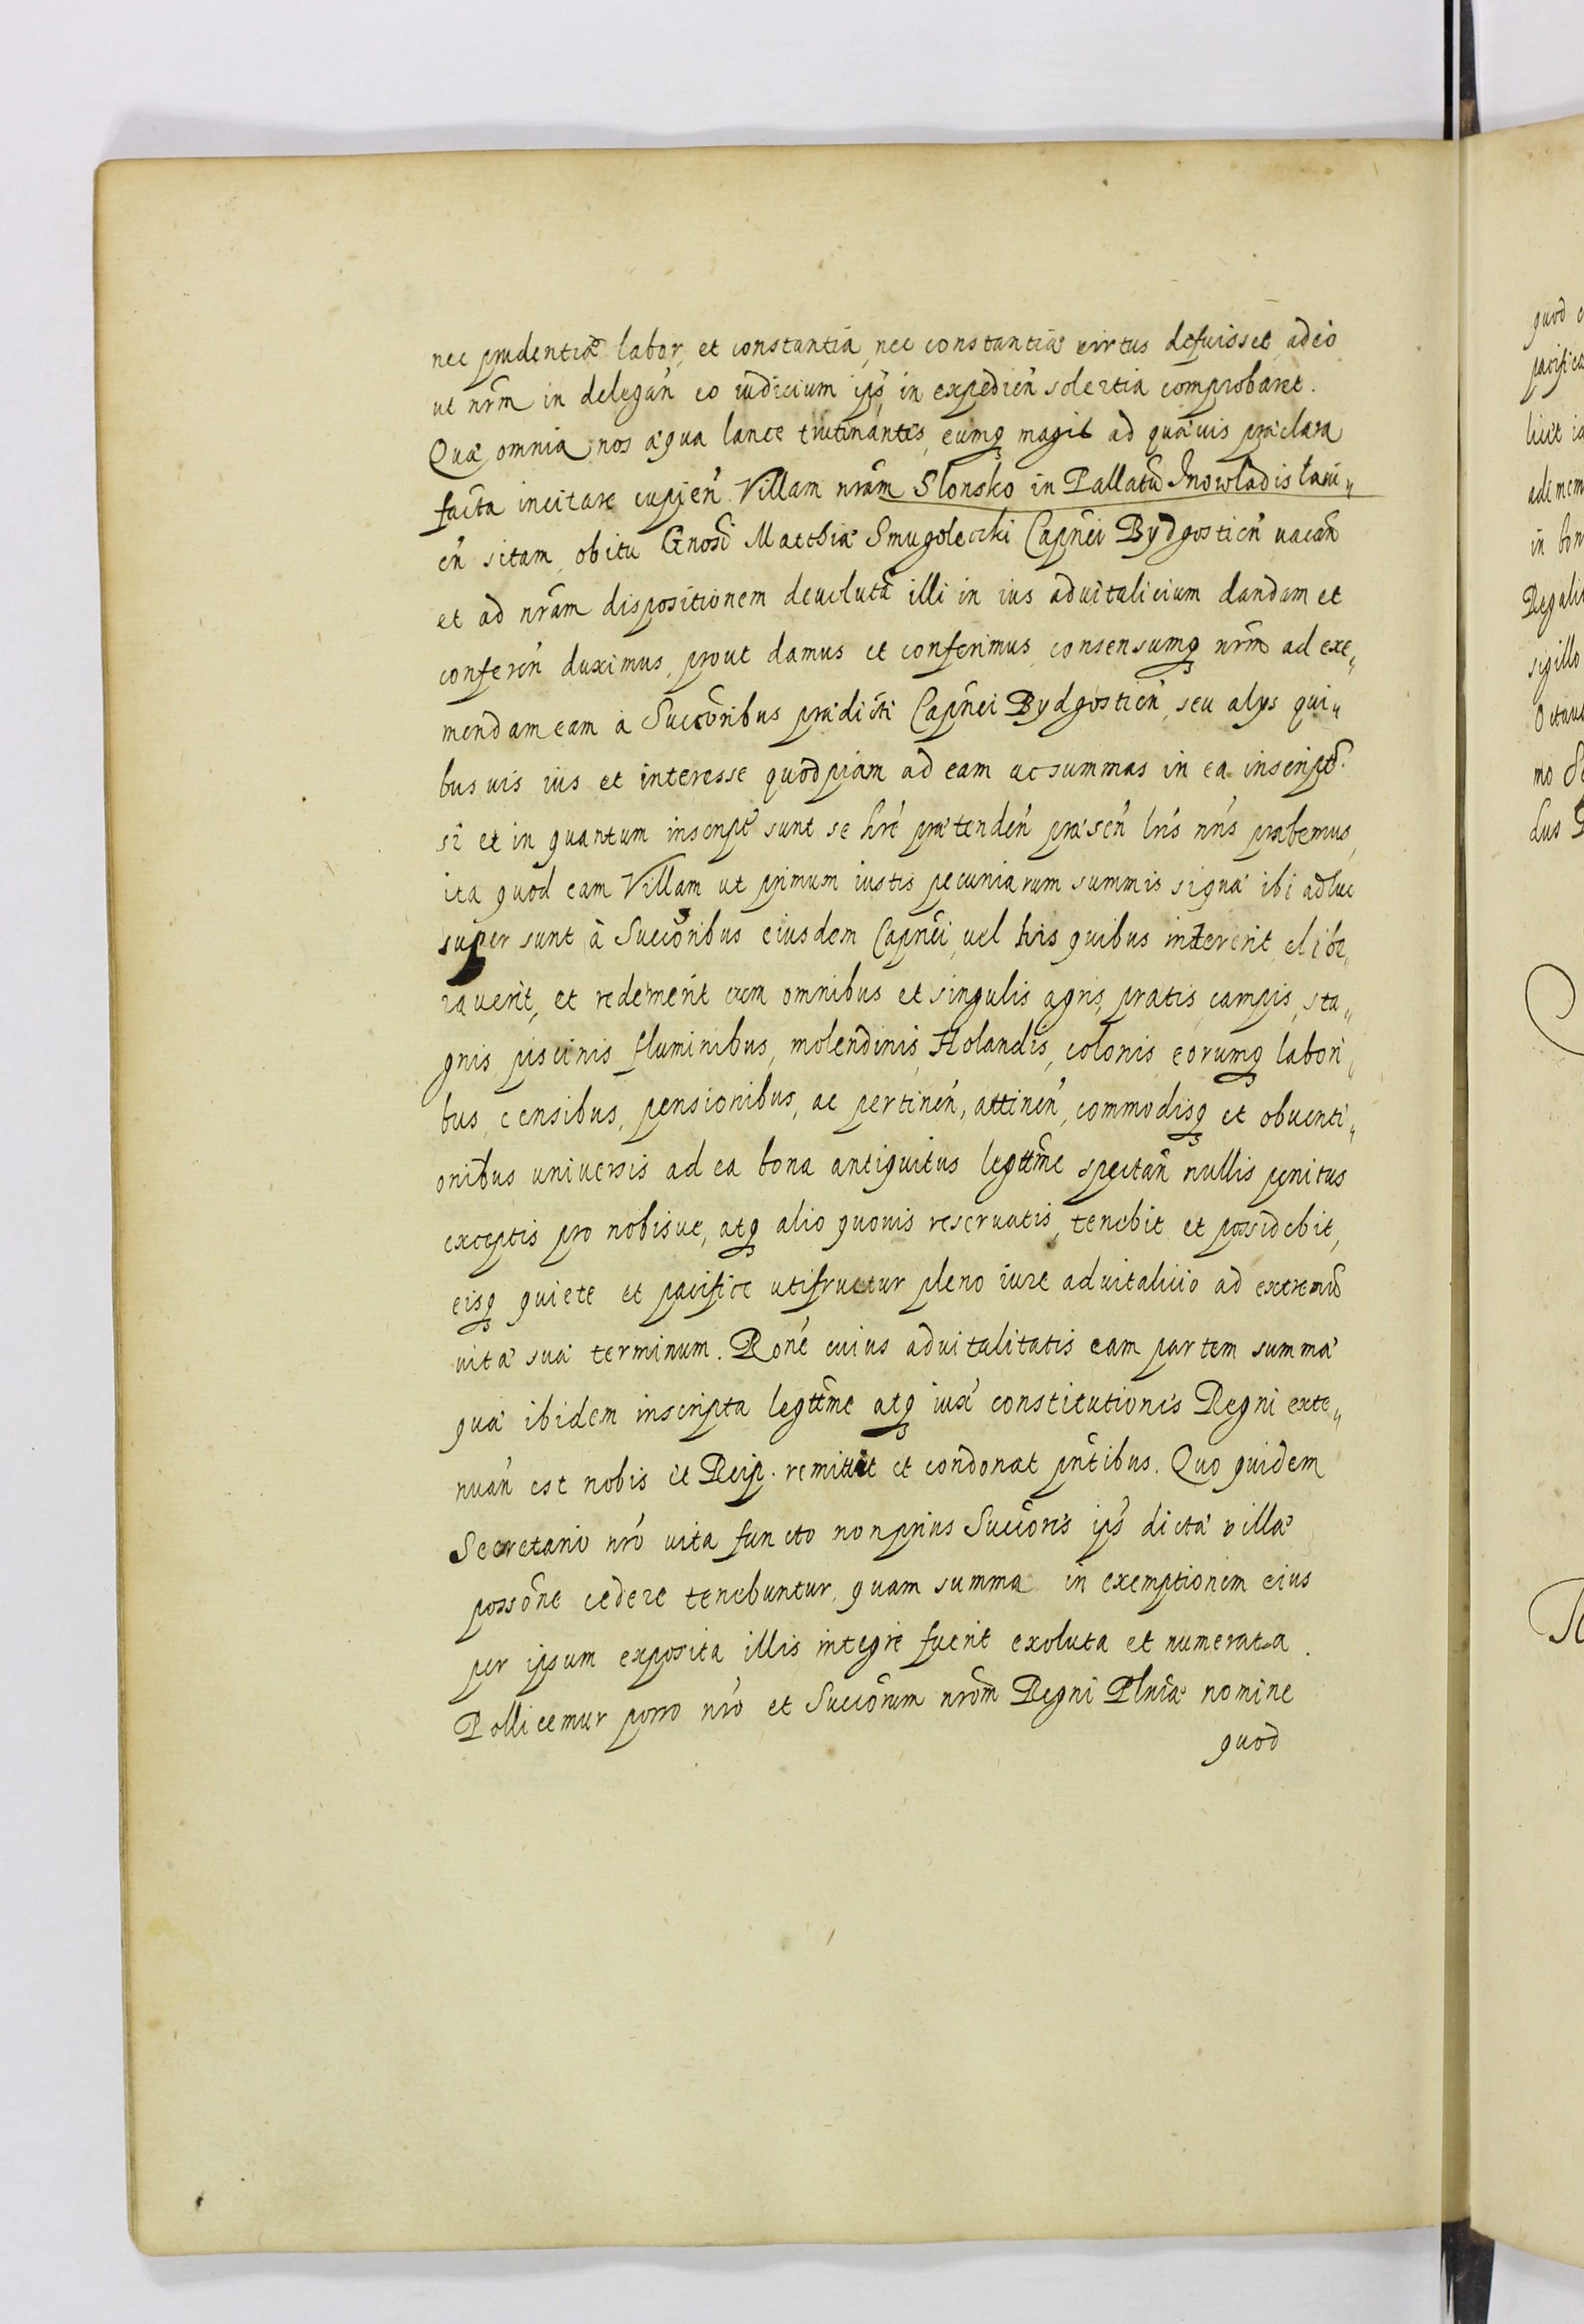 nec prudentiæ labor, et constantia, nec constantiæ virtus defuisset, adeò
ut nrm̃ in delegañ eo iudicium ips͛, in expedień solertia comprobaret.
Quæ omnia nos æqua lance trutinantes, eumq̨ magis ad quæuis præclara
facta incitare cupień. Villam nrãm Slonsko in Pallatũ Inowladislaui„
eñ sitam, obitu Gnosi Matthiæ Smugolecki Capñei Bydgostień uacañ
et ad nrãm dispositionem deuolutã illi in ius aduitalicium dandam et
conferéñ duximus, prout damus et conferimus, consensumq̨ nrm̃ ad exe„
mendam eam à Succõribus prædicti Capñei Bydgostień, seu alijs qui„
busuis ius et interesse quodpiam ad eam ac summas in ea inscript͂.
si et in quantum inscript͂ sunt se hr̃e prætendeń præseń lr̃is nr̃is præbemus,
ita quod eam Villam ut primum iustis pecuniarum summis siquæ ibi adhuc
super sunt à Succõribus eiusdem Capñei, uel his quibus intererit, elibe„
rauerit, et redemerit cum omnibus et singulis agris, pratis, campis, sta„
gnis, piscinis, fluminibus, molendinis, Holandis, colonis, eorumq̨ labori„
bus, censibus, pensionibus, ac pertineń, attineń, commodisq̨ et obuenti„
onibus uniuersis ad ea bona antiquitus legttm̃e spectañ nullis penitus
exceptis pro nobisue, atq̨ alio quouis reseruatis, tenebit et possidebit,
eisq̨ quiete et pacifice utifruetur pleno iure aduitalicio ad extremũ
uitæ suæ terminum. Roñe cuius aduitalitatis eam partem summæ
quæ ibidem inscripta legttm̃e atq̨ iux͛ constitutiones Regni exte„
nuań est nobis et Reip. remittit et condonat pñtibus. Quo quidem
Secretario nr̃o uita functo non prius Succõres ips͛ dictæ villæ
possõne cedere tenebuntur, quam summa in exemptionem eius
per ipsum exposita illis integre fuerit exoluta et numerata.
Pollicemur porro nr̃o et Succõrum nrõm Regni Plniæ nomine
quod